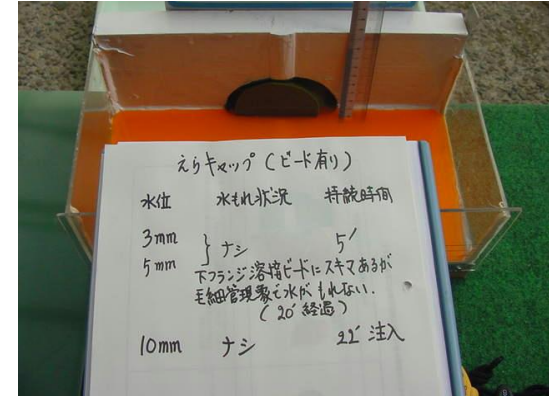 えらキャップ(ビード有り)
水位 水もれ状況 持続時間
3mm
5mm } ナシ 5′
下フランジ溶接ビードにスキマあるが
毛細管現象で水がもれない.
(20′経過)
10mm ナシ 22′注入